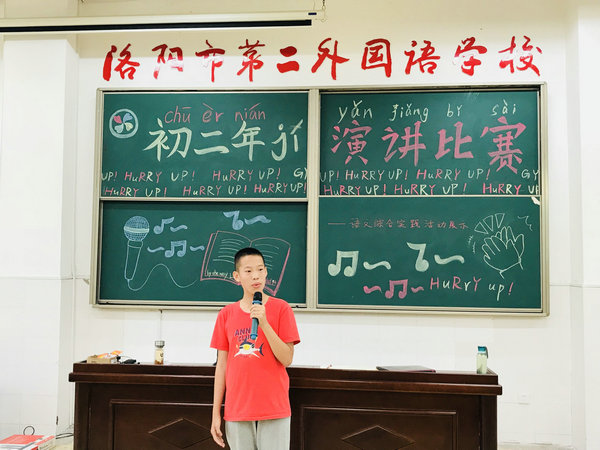 洛阳市第二外国语学校
chū èr nián
初二年jí
UP! HuRRY UP! HuRRY UP! GY
HuRRY UP! HuRRY UP! HuRRY UP!
yǎn jiǎng bǐ sài
演讲比赛
UP! HuRRY UP! HuRRY UP! GY
HuRRY UP! HuRRY UP! HuRRY UP
——语文综合实践活动展示
HuRrY up!
ANN